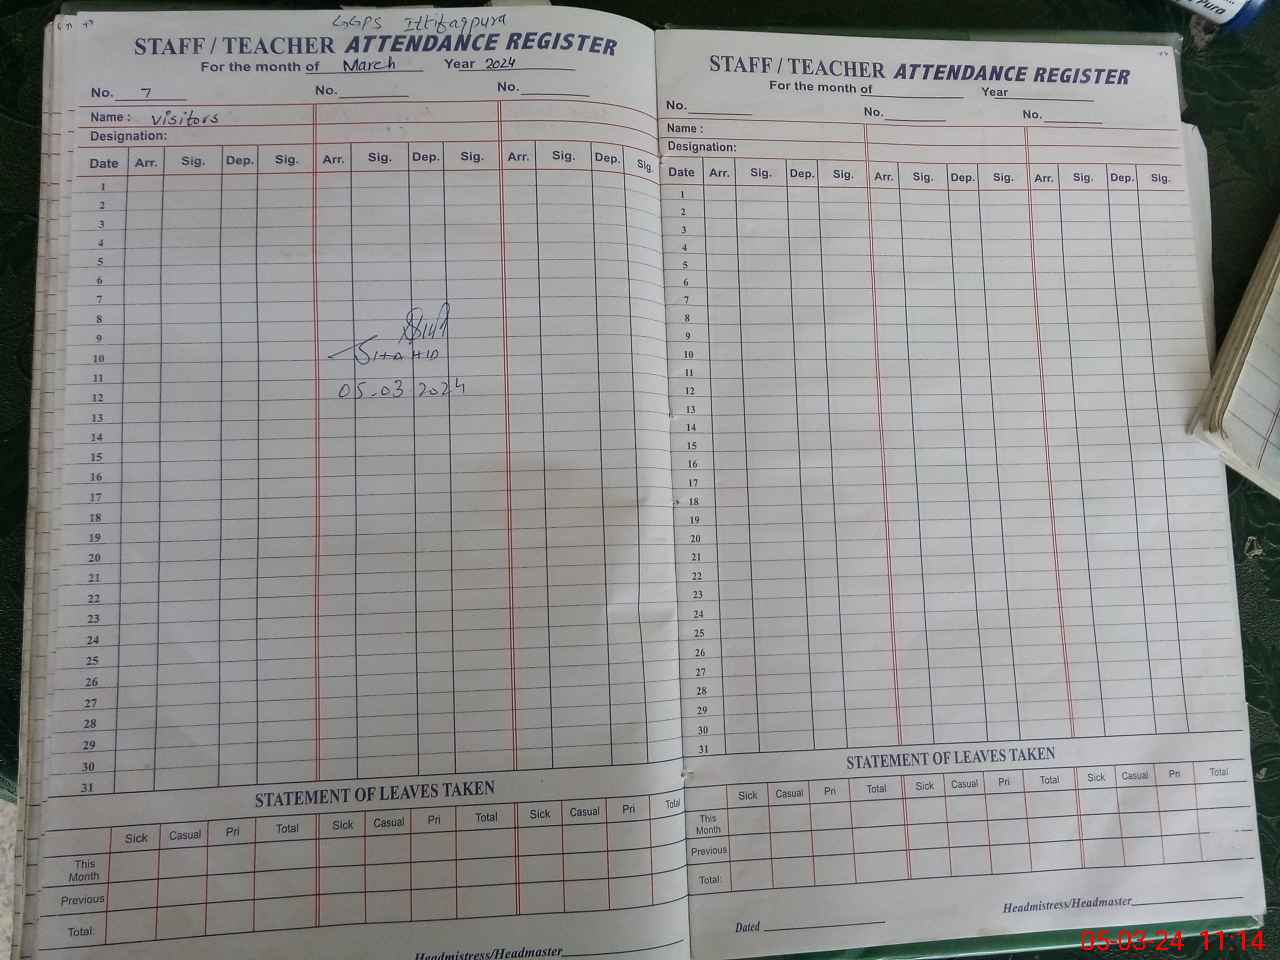 GGPS Ittifaqpura
STAFF / TEACHER ATTENDANCE REGISTER
For the month of March Year 2024
No. 7 No. No.
Name : Visitors
Designation:
Date Arr. Sig. Dep. Sig. Arr. Sig. Dep. Sig. Arr. Sig. Dep. Sig.
1
2
3
4
5
6
7
8
9
10
11
12
13
14
15
16
17
18
19
20
21
22
23
24
25
26
27
28
29
30
31
SHAHID
05.03 2024
STATEMENT OF LEAVES TAKEN
Sick Casual Pri Total Sick Casual Pri Total Sick Casual Pri Total
This
Month
Previous
Total:
Headmistress/Headmaster
STAFF / TEACHER ATTENDANCE REGISTER
For the month of Year
No. No. No.
Name :
Designation:
Date Arr. Sig. Dep. Sig. Arr. Sig. Dep. Sig. Arr. Sig. Dep. Sig.
1
2
3
4
5
6
7
8
9
10
11
12
13
14
15
16
17
18
19
20
21
22
23
24
25
26
27
28
29
30
31
STATEMENT OF LEAVES TAKEN
Sick Casual Pri Total Sick Casual Pri Total Sick Casual Pri Total
This
Month
Previous
Total:
Dated Headmistress/Headmaster
05-03-24 11:14